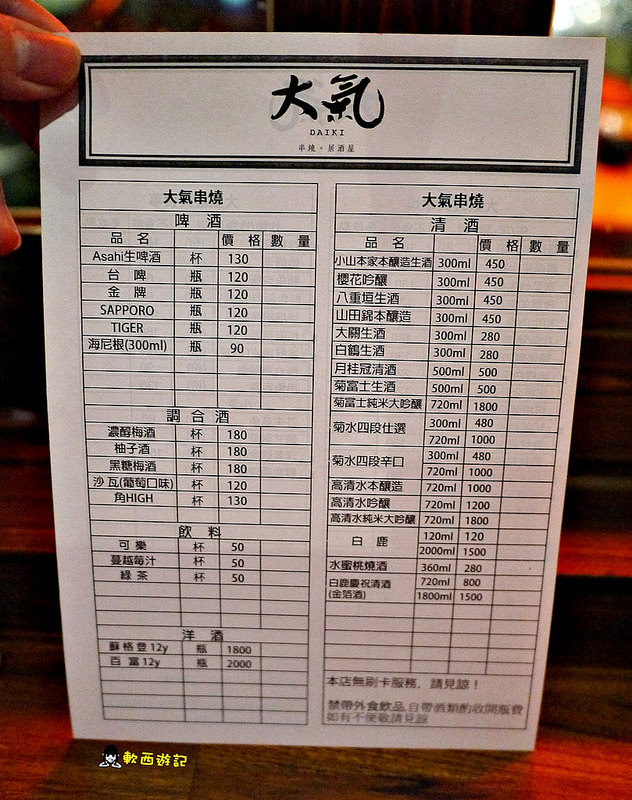 大氣
DAIKI
串燒・居酒屋
大氣串燒
啤 酒
品 名 價 格 數 量
Asahi生啤酒 杯 130
台 啤 瓶 120
金 牌 瓶 120
SAPPORO 瓶 120
TIGER 瓶 120
海尼根(300ml) 瓶 90
調 合 酒
濃醇梅酒 杯 180
柚子酒 杯 180
黑糖梅酒 杯 180
沙瓦(葡萄口味) 杯 120
角HIGH 杯 130
飲 料
可 樂 杯 50
蔓越莓汁 杯 50
綠 茶 杯 50
洋 酒
蘇格登12y 瓶 1800
百 富12y 瓶 2000
大氣串燒
清 酒
品 名 價 格 數 量
小山本家本釀造生酒 300ml 450
櫻花吟釀 300ml 450
八重垣生酒 300ml 450
山田錦本釀造 300ml 450
大關生酒 300ml 280
白鶴生酒 300ml 280
月桂冠清酒 500ml 500
菊富士生酒 500ml 500
菊富士純米大吟釀 720ml 1800
菊水四段仕選 300ml 480
720ml 1000
菊水四段辛口 300ml 480
720ml 1000
高清水本釀造 720ml 1000
高清水吟釀 720ml 1200
高清水純米大吟釀 720ml 1800
白 鹿 120ml 120
2000ml 1500
水蜜桃燒酒 360ml 280
白鹿慶祝清酒 720ml 800
(金箔酒) 1800ml 1500
本店無刷卡服務，請見諒！
禁帶外食飲品,自帶酒類酌收開瓶費
如有不便敬請見諒
軟西遊記